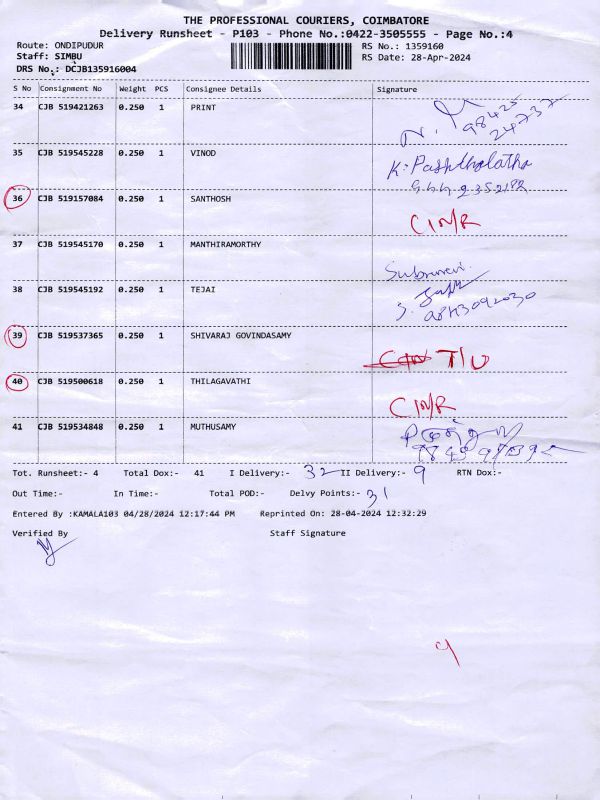 THE PROFESSIONAL COURIERS, COIMBATORE
Delivery Runsheet - P103 - Phone No.:0422-3505555 - Page No.:4
Route: ONDIPUDUR RS No.: 1359160
Staff: SIMBU RS Date: 28-Apr-2024
DRS No.: DCJB135916004
S No Consignment No Weight PCS Consignee Details Signature
34 CJB 519421263 0.250 1 PRINT 98425
24737
35 CJB 519545228 0.250 1 VINOD
36 CJB 519157084 0.250 1 SANTHOSH
CIN/R
37 CJB 519545170 0.250 1 MANTHIRAMORTHY
38 CJB 519545192 0.250 1 TEJAI
9843092030
39 CJB 519537365 0.250 1 SHIVARAJ GOVINDASAMY
T/U
40 CJB 519500618 0.250 1 THILAGAVATHI
CIN/R
41 CJB 519534848 0.250 1 MUTHUSAMY
Tot. Runsheet:- 4 Total Dox:- 41 I Delivery:- 32 II Delivery:- 9 RTN Dox:-
Out Time:- In Time:- Total POD:- Delvy Points:- 31
Entered By :KAMALA103 04/28/2024 12:17:44 PM Reprinted On: 28-04-2024 12:32:29
Verified By Staff Signature